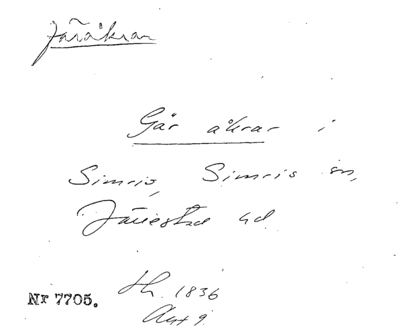 Går åkrar i
Simris, Simris sn,
Järrestad hd
Nr 7705.
Lh. 1836
Akt 9